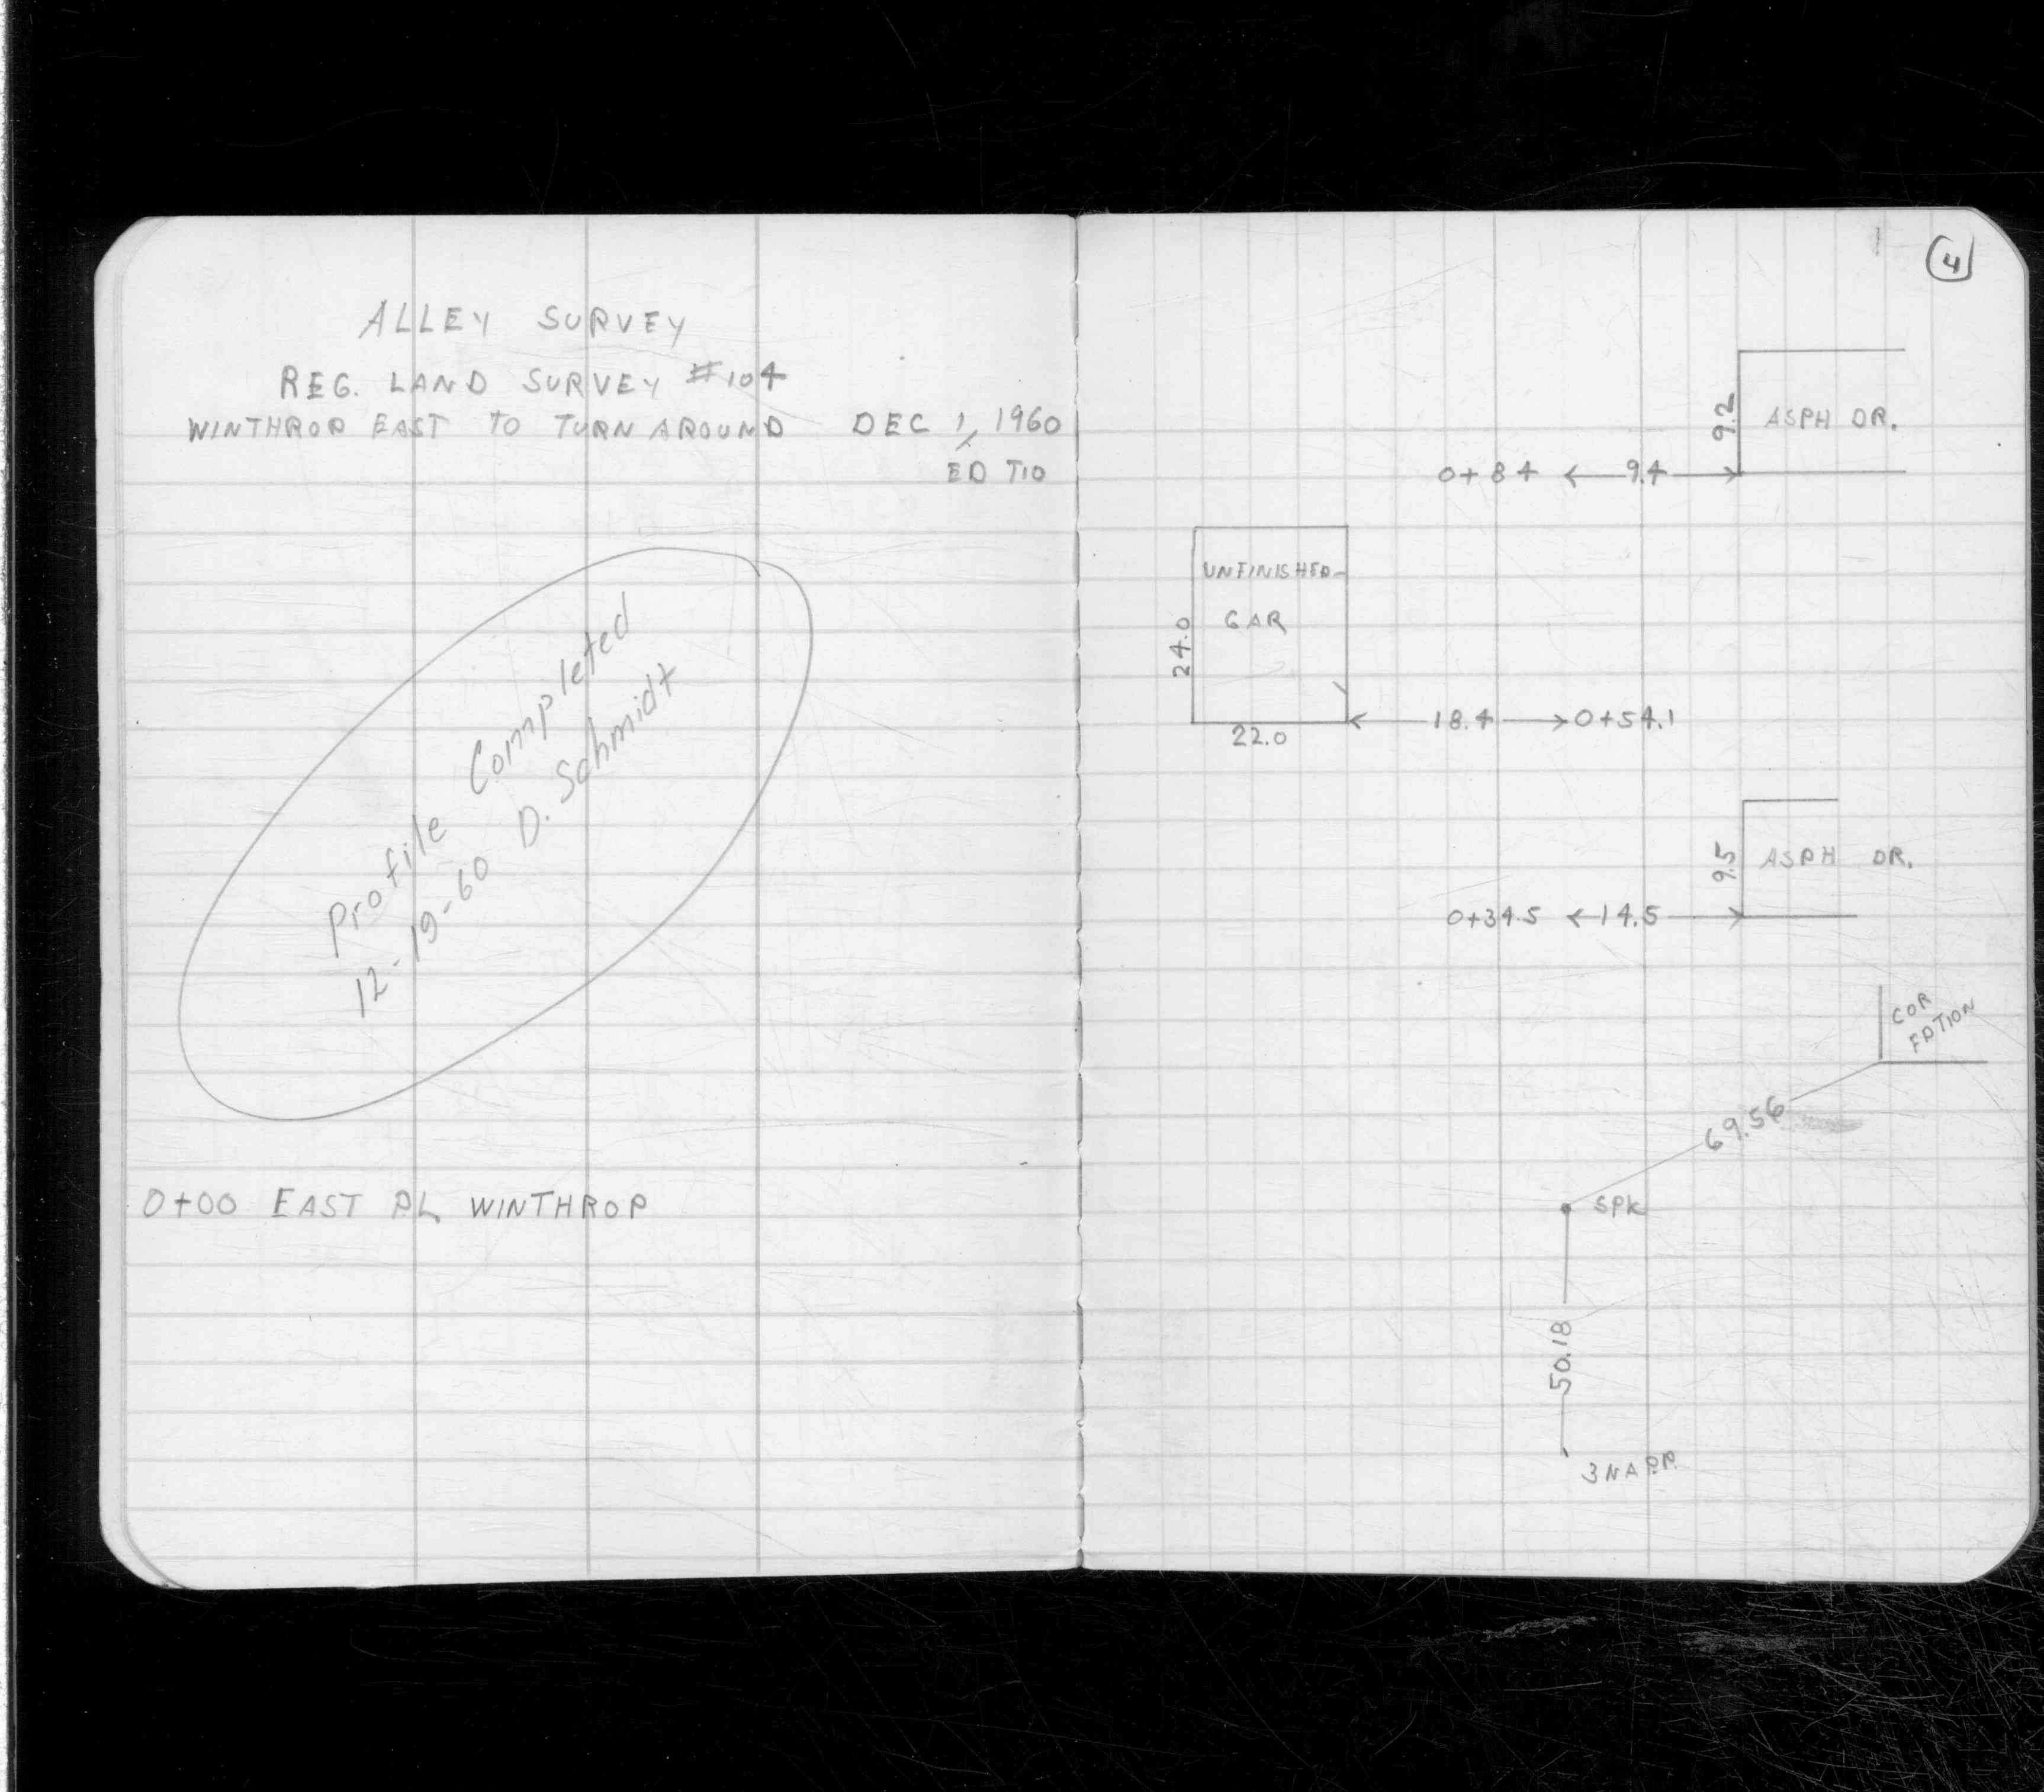 ALLEY SURVEY
REG. LAND SURVEY #104
WINTHROP EAST TO TURN AROUND DEC 1, 1960
ED TIO
Profile Completed
12-19-60 D. Schmidt
0+00 EAST PL WINTHROP
4
9.2
ASPH DR.
0+84 9.4
UNFINISHED
GAR
24.0
22.0
18.4 0+54.1
9.5
ASPH DR.
0+34.5 14.5
COR
FDTION
69.56
SPK
50.18
3NAPP.